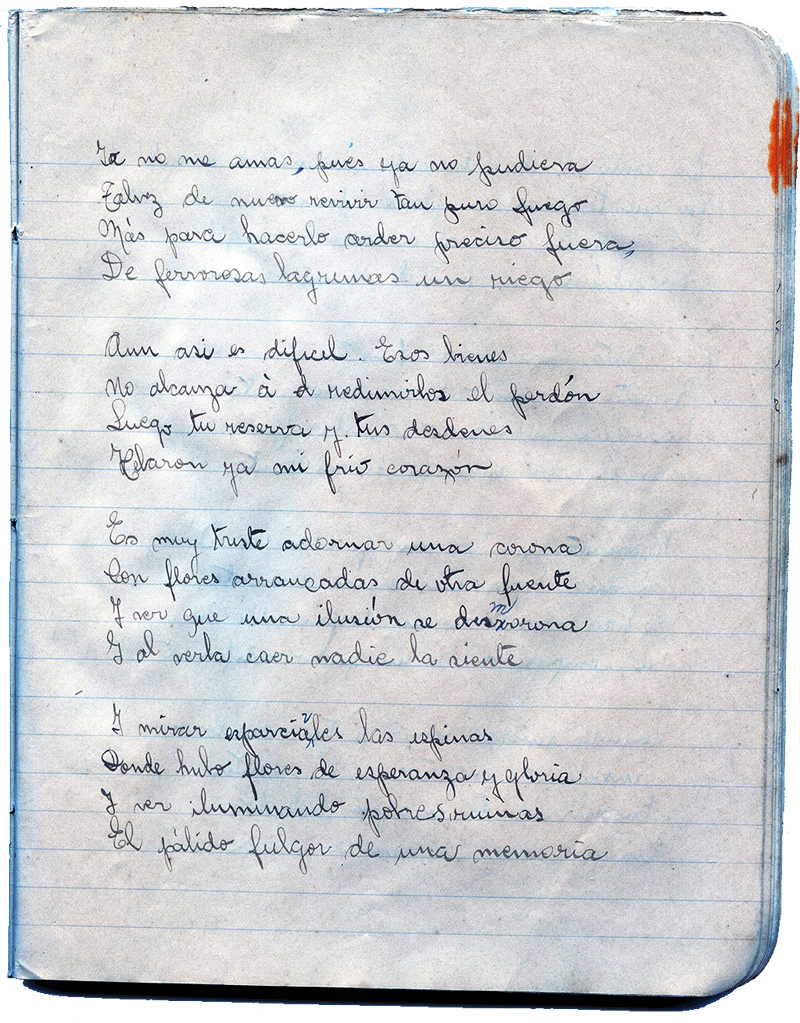 Ya no me amas, pues ya no pudiera
Talvez de nuevo revivir tan puro fuego
Más para hacerlo arder preciso fuera,
De fervorosas lagrimas un riego
Aun asi es dificil. Esos bienes
No alcanza à redimirlos el perdón
Luego tu reserva y tus desdenes
Helaron ya mi frio corazón
Es muy triste adornar una corona
Con flores arrancadas de otra fuente
I ver que una ilusión se desmorona
Y al verla caer nadie la siente
I mirar esparcirles las espinas
Donde hubo flores de esperanza y gloria
I ver iluminando pobres ruinas
El pálido fulgor de una memoria